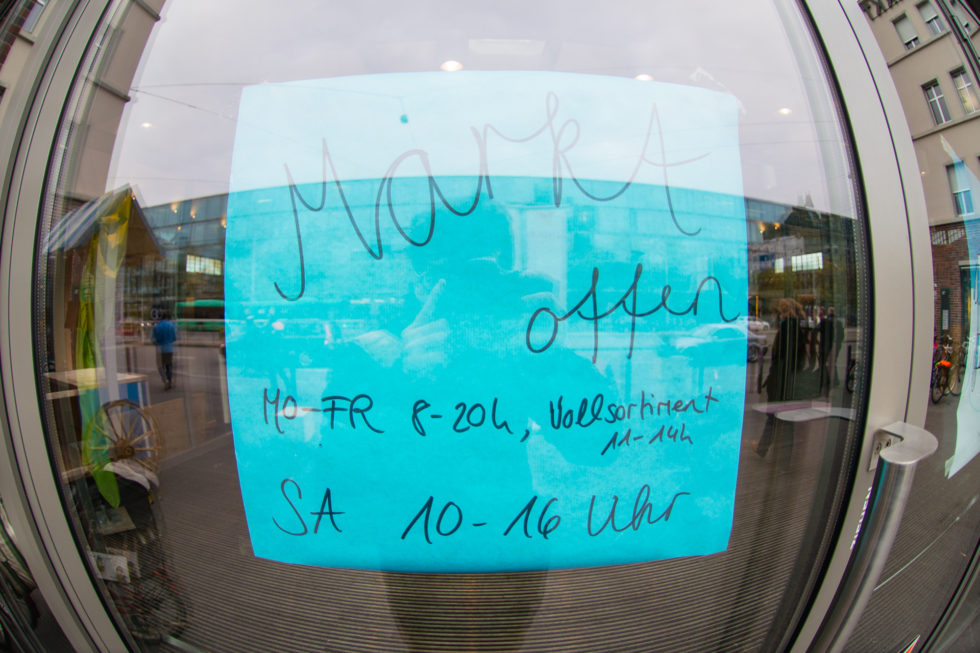 Markt
offen
MO-FR 8-20h, Vollsortiment
11-14h
SA 10-16 Uhr